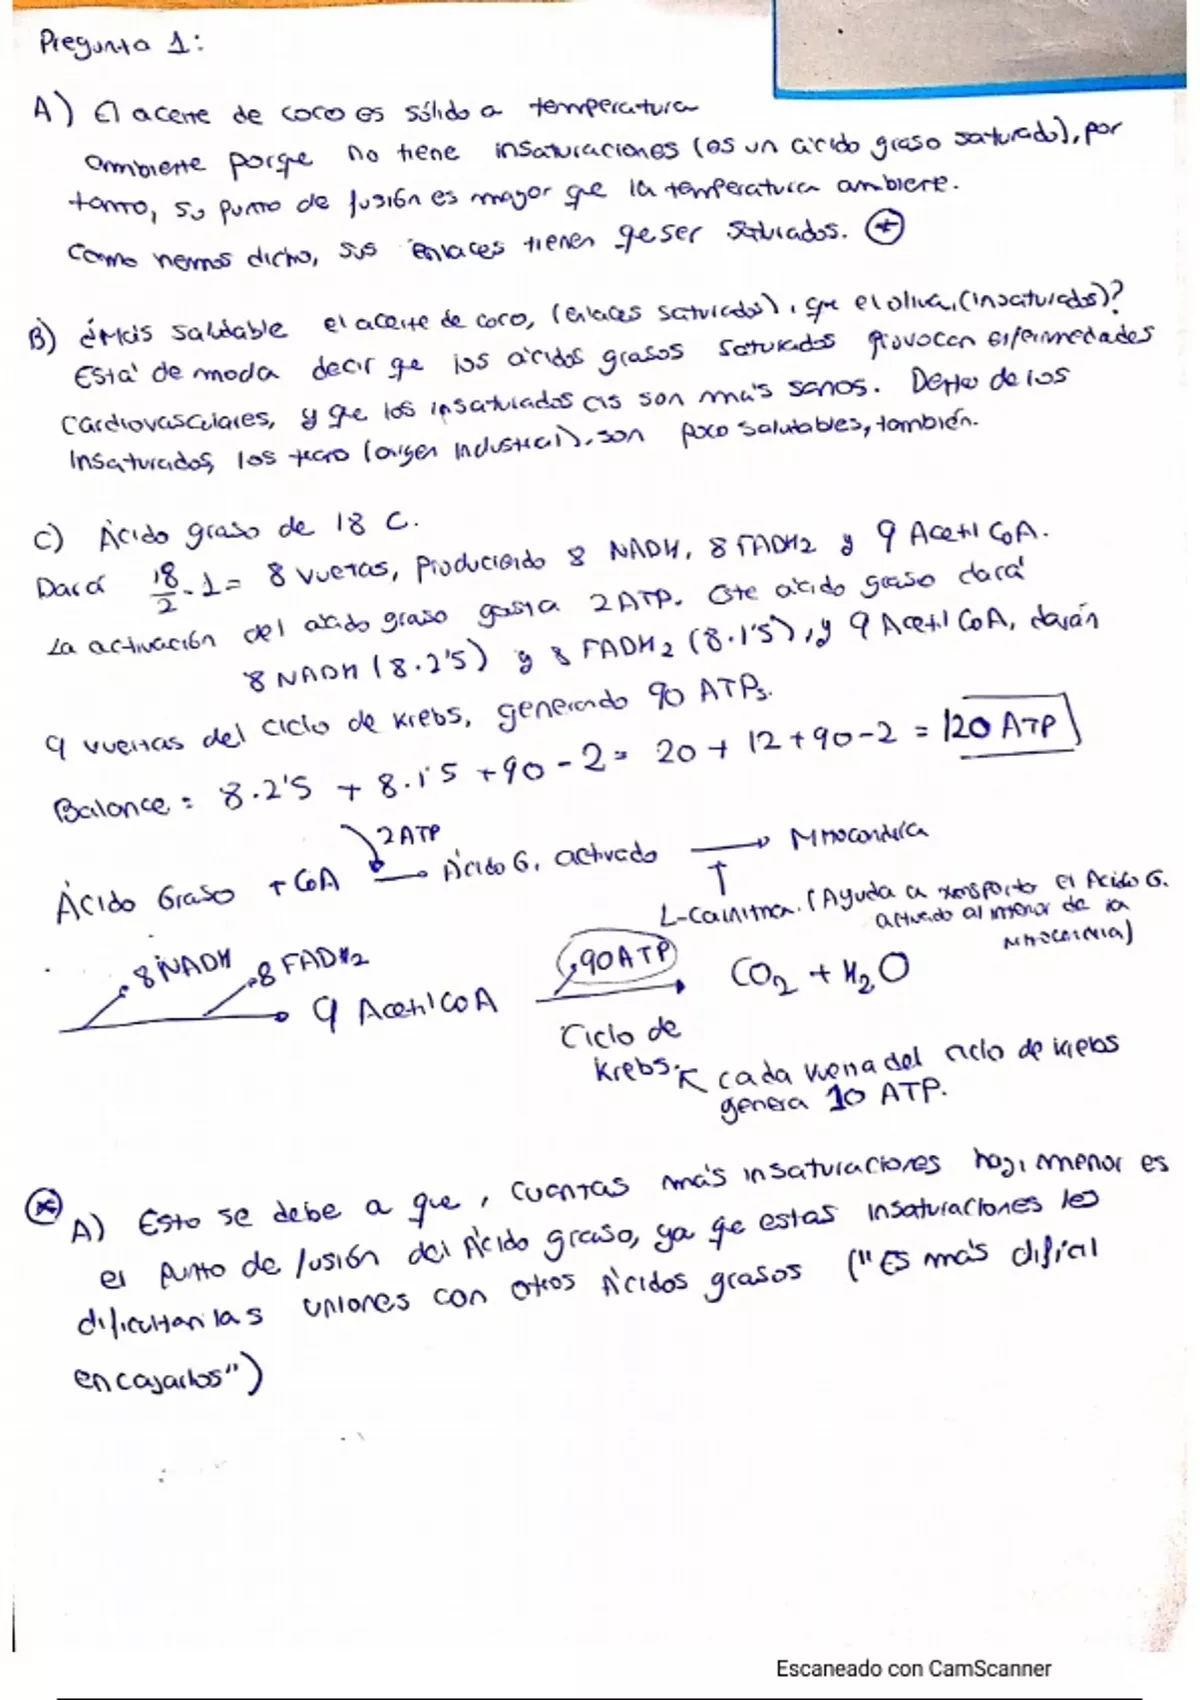 Pregunta 1:
A) El aceite de coco es sólido a temperatura
ambiente porqe no tiene insaturaciones (es un ácido graso saturado), por
tanto, su punto de fusión es mayor qe la temperatura ambiente.
Como hemos dicho, sus enlaces tienen qe ser saturados. (*)
B) ¿Más saludable el aceite de coco, (enlaces saturados), que el oliva, (insaturados)?
Está de moda decir qe los ácidos grasos saturados provocan enfermedades
cardiovasculares, y qe los insaturados cis son más sanos. Dentro de los
insaturados, los trans (origen industrial), son poco saludables, también.
C) Ácido graso de 18 C.
Dará 18/2 - 1 = 8 vueltas, produciendo 8 NADH, 8 FADH2 y 9 Acetil CoA.
La activación del ácido graso gasta 2 ATP. Este ácido graso dará
8 NADH (8·2'5) y 8 FADH2 (8·1'5), y 9 Acetil CoA, darán
9 vueltas del ciclo de Krebs, generando 90 ATPs.
Balance = 8·2'5 + 8·1'5 + 90 - 2 = 20 + 12 + 90 - 2 = 120 ATP
2 ATP
Ácido Graso + CoA → Ácido G. activado → Mitocondria
L-Carnitina. (Ayuda a transportar el Ácido G.
activado al interior de la
mitocondria)
8 NADH 8 FADH2 90 ATP
→ 9 Acetil CoA → CO2 + H2O
Ciclo de
Krebs. ↖ cada vuelta del ciclo de Krebs
genera 10 ATP.
(*) A) Esto se debe a que, cuantas más insaturaciones hay, menor es
el punto de fusión del Ácido graso, ya qe estas insaturaciones les
dificultan las uniones con otros Ácidos grasos ("Es más difícil
encajarlos")
Escaneado con CamScanner